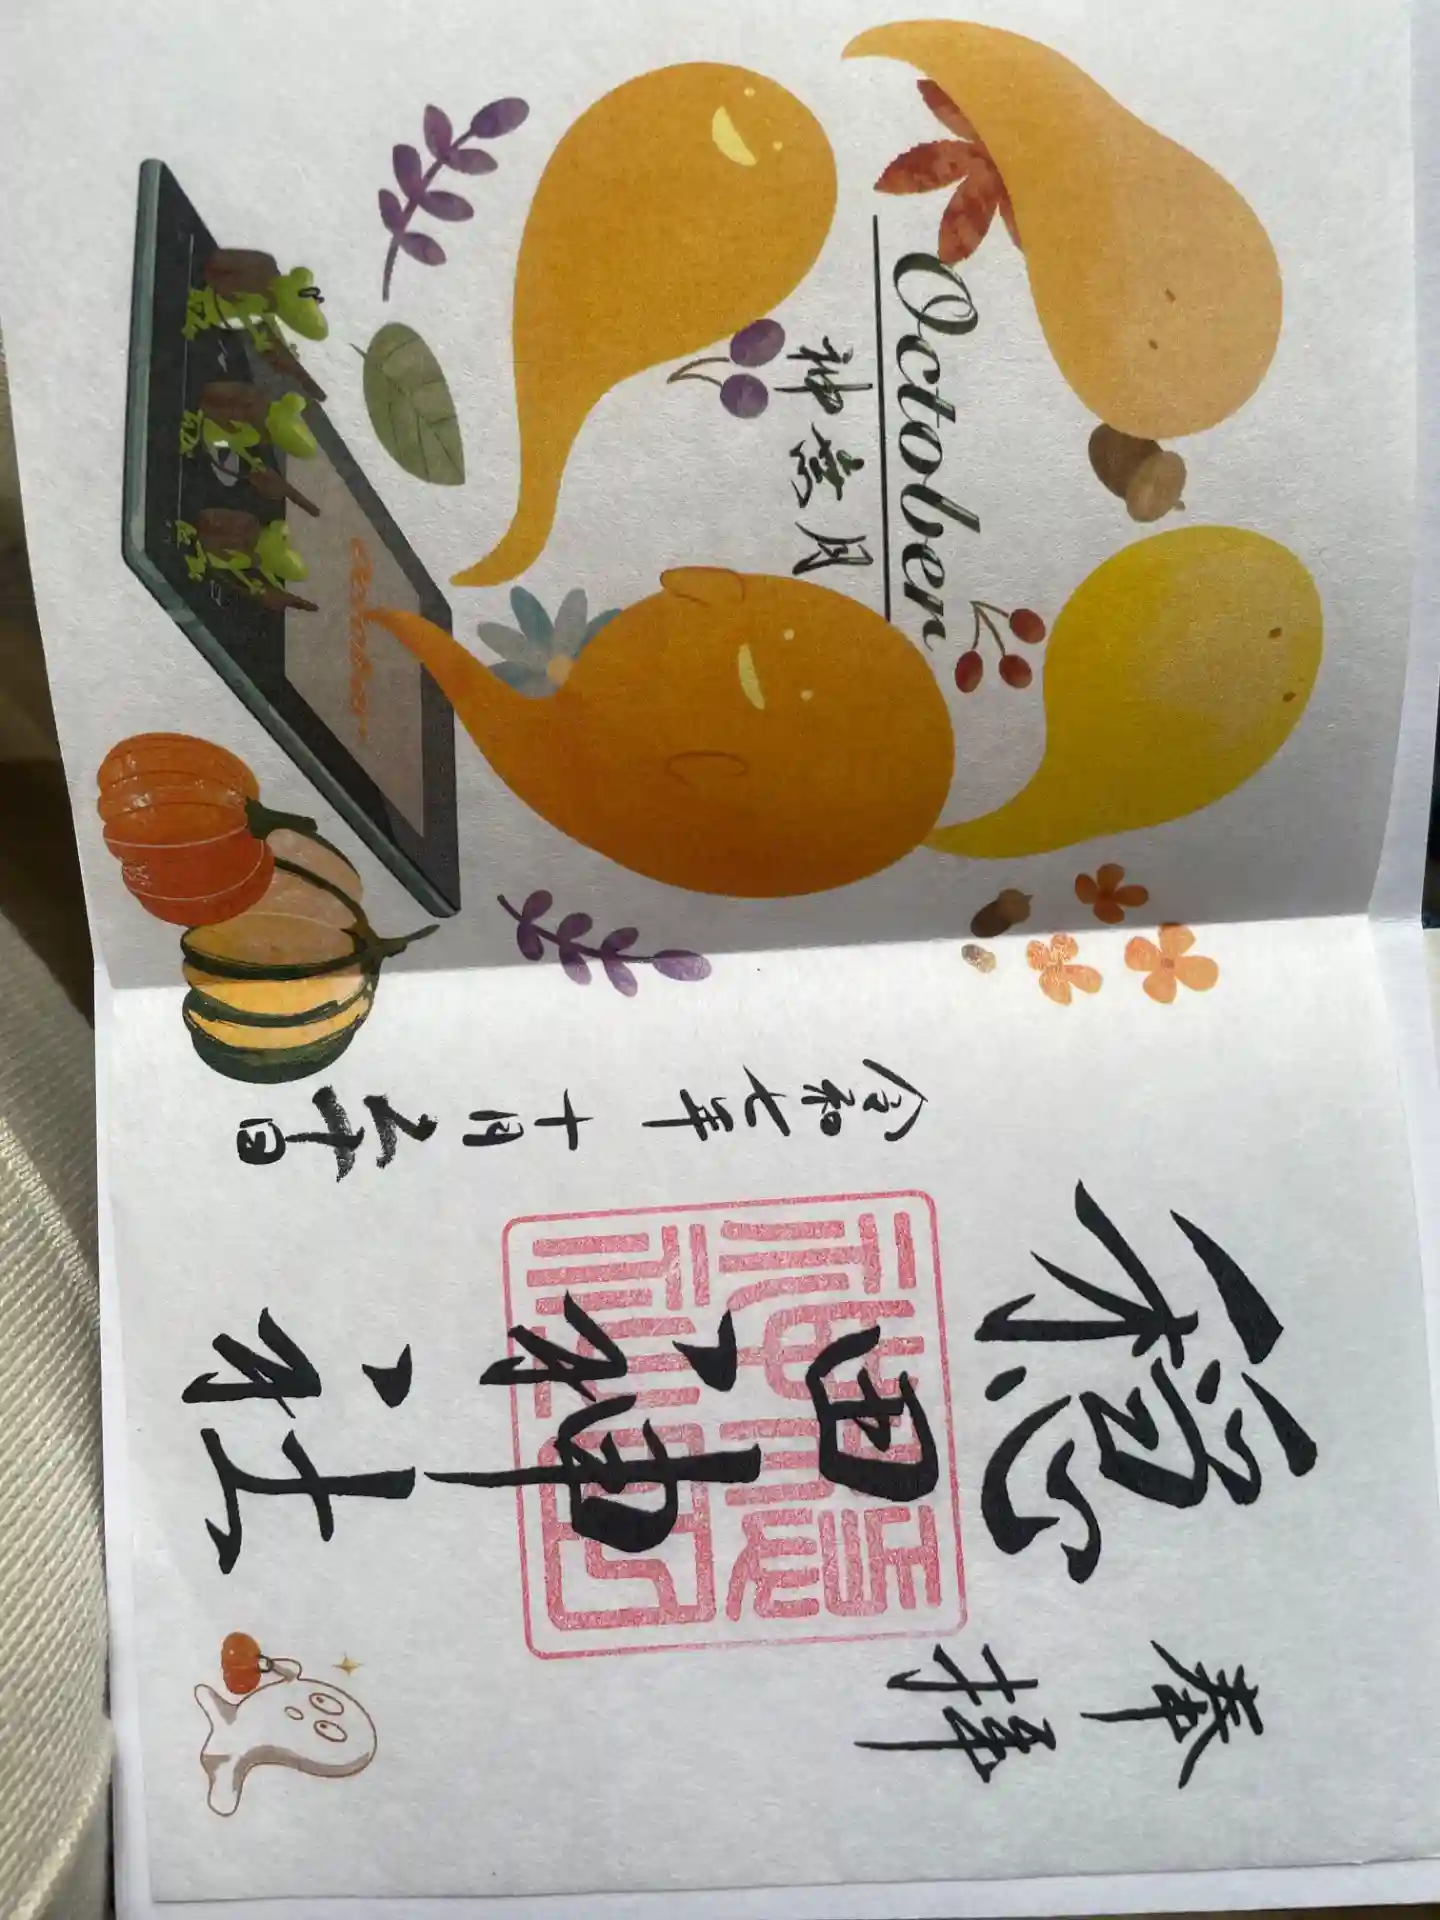 奉拝
穏田神社
令和七年十月十日
October
神無月